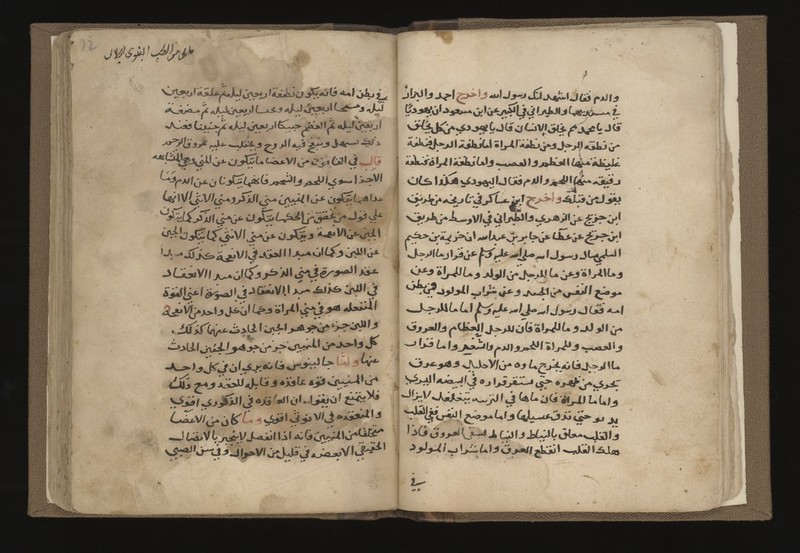 والدم فقال اشهد انك رسول الله واخرج احمد والبزار
في مسنديهما والطبراني في الكبير عن ابن مسعود ان يهوديا
قال يا محمد مم يخلق الانسان قال يا يهودي من كل يخلق
من نطفة الرجل ومن نطفة المراة اما نطفة الرجل فنطفة
غليظة منها العظم والعصب واما نطفة المراة فنطفة
رقيقة منها اللحم والدم فقال اليهودي هكذا كان
يقول من قبلك واخرج ابن عساكر في تاريخه من طريق
ابن جريج عن الزهري والطبراني في الاوسط من طريق
ابن جريج عن عطا عن جابر بن عبد الله ان خزيمة بن حكيم
السلمي سال رسول الله صلى الله عليه وسلم عن قرار ما الرجل
وما المراة وعن ما للرجل من الولد وما للمراة وعن
موضع النفس من الجسد وعن شراب المولود في بطن
امه فقال رسول الله صلى الله عليه وسلم اما ما للرجل
من الولد وما للمراة فان للرجل العظام والعروق
والعصب وللمراة اللحم والدم والشعر واما قرار
ما الرجل فانه يخرج ماوه من الاحليل وهو عرق
يجري من ظهره حتى يستقر قراره في البيضه اليسرى
واما ما المراة فان ماها في التريبه يتغلغل لا يزال
يدنو حتى تذوق عسيلها واما موضع النفس ففي القلب
والقلب معلق بالنياط والنياط يسقي العروق فاذا
هلك القلب انقطع العرق واما شراب المولود
في
12
في بطن امه فانه يكون نطفة اربعين ليله ثم علقة اربعين
ليله ومشيجا اربعين ليله وعبيسا اربعين ليله ثم مضغة
اربعين ليله ثم العظم حنيكا اربعين ليله ثم جنينا فعند
ذلك يستهل وينفخ فيه الروح ويجتلب عليه عروق الرحم
قال في القانون من الاعضا ما يتكون عن المني وهي المتشابهه
الاجزا سوى اللحم والشحم فانهما يتكونان عن الدم وما
عداهما يتكون عن المنيين مني الذكر ومني الانثى الا انها
على قول من تحقق من الحكما يتكون عن مني الذكر كما يتكون
الجبن عن الانفحة ويتكون عن مني الانثى كما يتكون الجبن
عن اللبن وكما ان مبدا العقد في الانفحة كذلك مبدا
عقد الصورة في مني الذكر وكما ان مبدا الانعقاد
في اللبن كذلك مبدا الانعقاد في الصورة اعني القوة
المنفعله هو في مني المراة وكما ان كل واحد من الانفحة
واللبن جزء من جوهر الجبن الحادث عنهما كذلك
كل واحد من المنيين جزء من جوهر الجنين الحادث
عنهما واما جالينوس فانه يرى ان في كل واحد
من المنيين قوة عاقدة وقابله للعقد ومع ذلك
فلا يمتنع ان يقول ان العاقده في الذكوري اقوى
والمنعقده في الانوثي اقوى وما كان من الاعضا
متخلقا من المنيين فانه اذا انفصل لا ينجبر بالاتصال
الحقيقي الا بعضه في قليل من الاحوال وفي سن الصبى